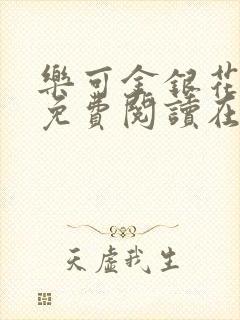 樂可金銀花
免費閱讀在
天虛我生